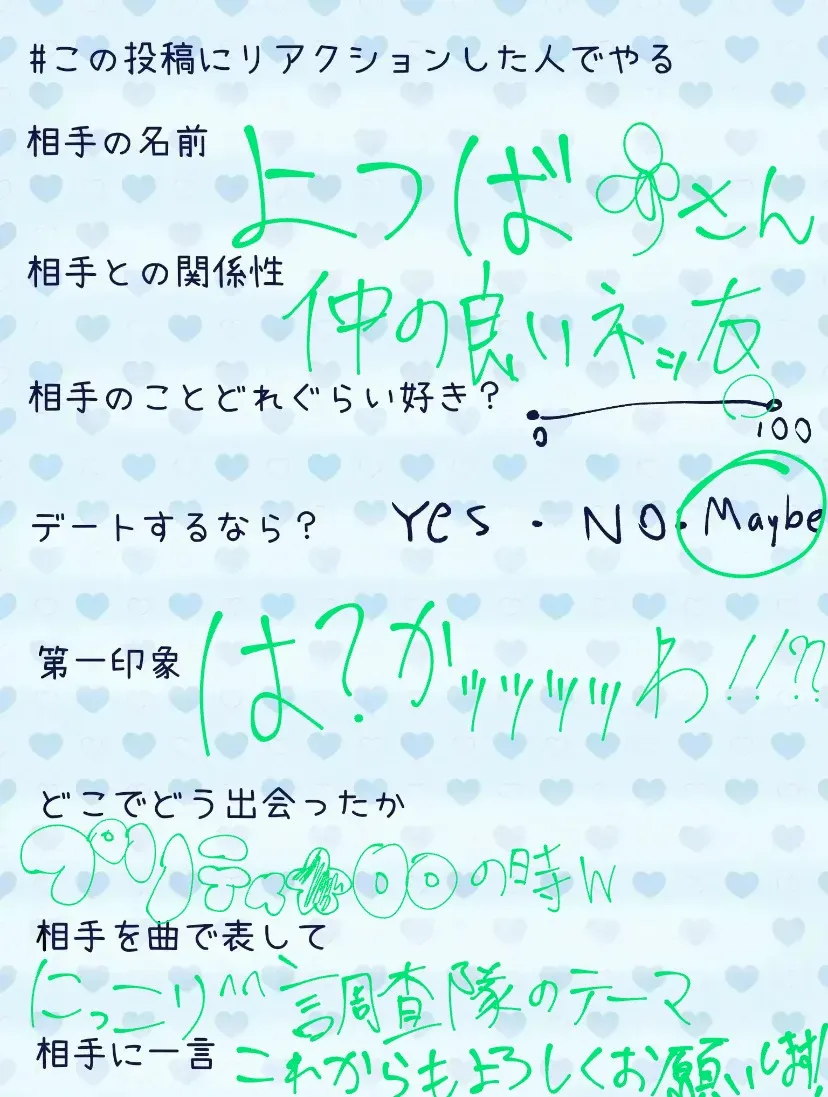 #この投稿にリアクションした人でやる
相手の名前 よつば🍀さん
相手との関係性 仲の良いネッ友
相手のことどれぐらい好き? 0 100
デートするなら? Yes・NO・Maybe
第一印象 は?かッッッッわ!!??
どこでどう出会ったか
の時w
相手を曲で表して
にっこり^^調査隊のテーマ
相手に一言 これからもよろしくお願いします!